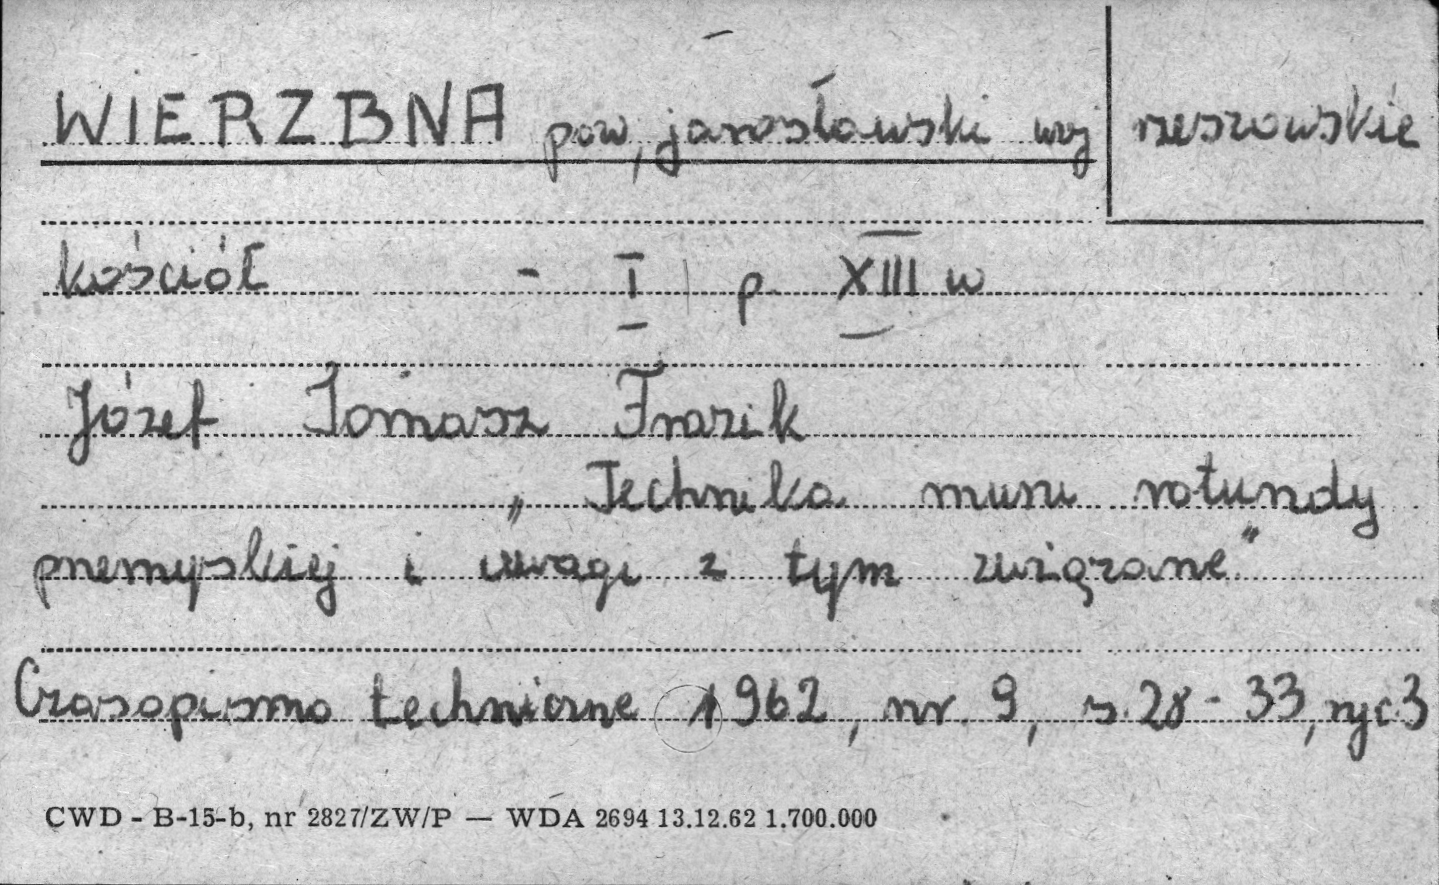 WIERZBNA pow, jarosławski woj rzeszowskie
kościół - I p. XIII w
Józef Tomasz Frazik
„Technika muru rotundy
przemyskiej i uwagi z tym związane"
Czasopismo techniczne 1962, nr. 9, s. 28 - 33, ryc. 3
CWD - B-15-b, nr 2827/ZW/P — WDA 2694 13.12.62 1.700.000